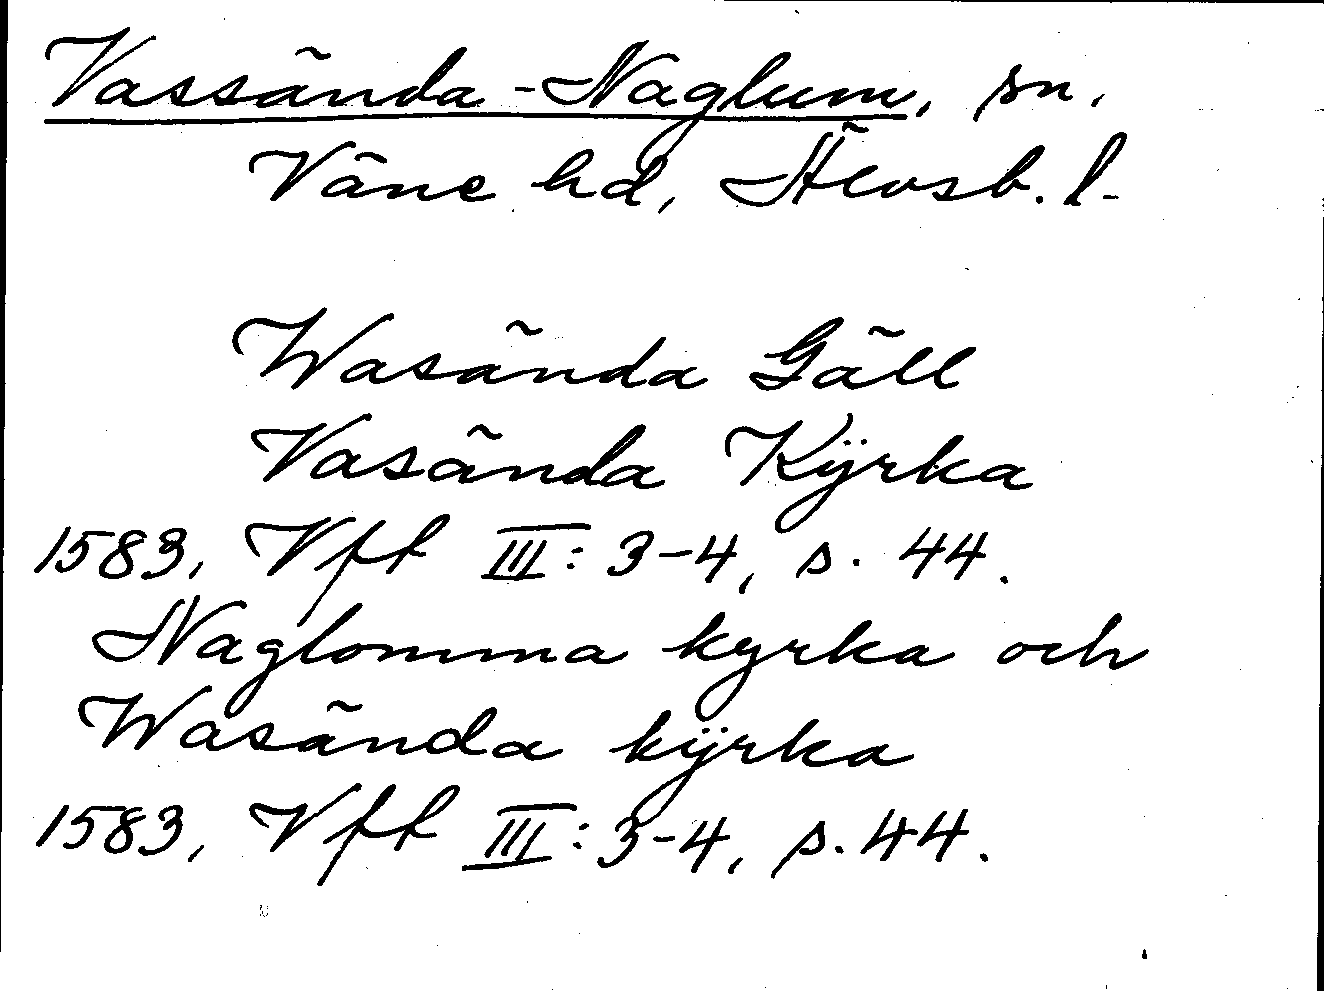 Vassända-Naglum, sn.
Väne hd, Älvsb. l.
Wasända Gäll
Vasända Kÿrka
1583, Vft III: 3-4, s. 44.
Naglomma kyrka och
Wasända kÿrka
1583, Vft III: 3-4, s. 44.